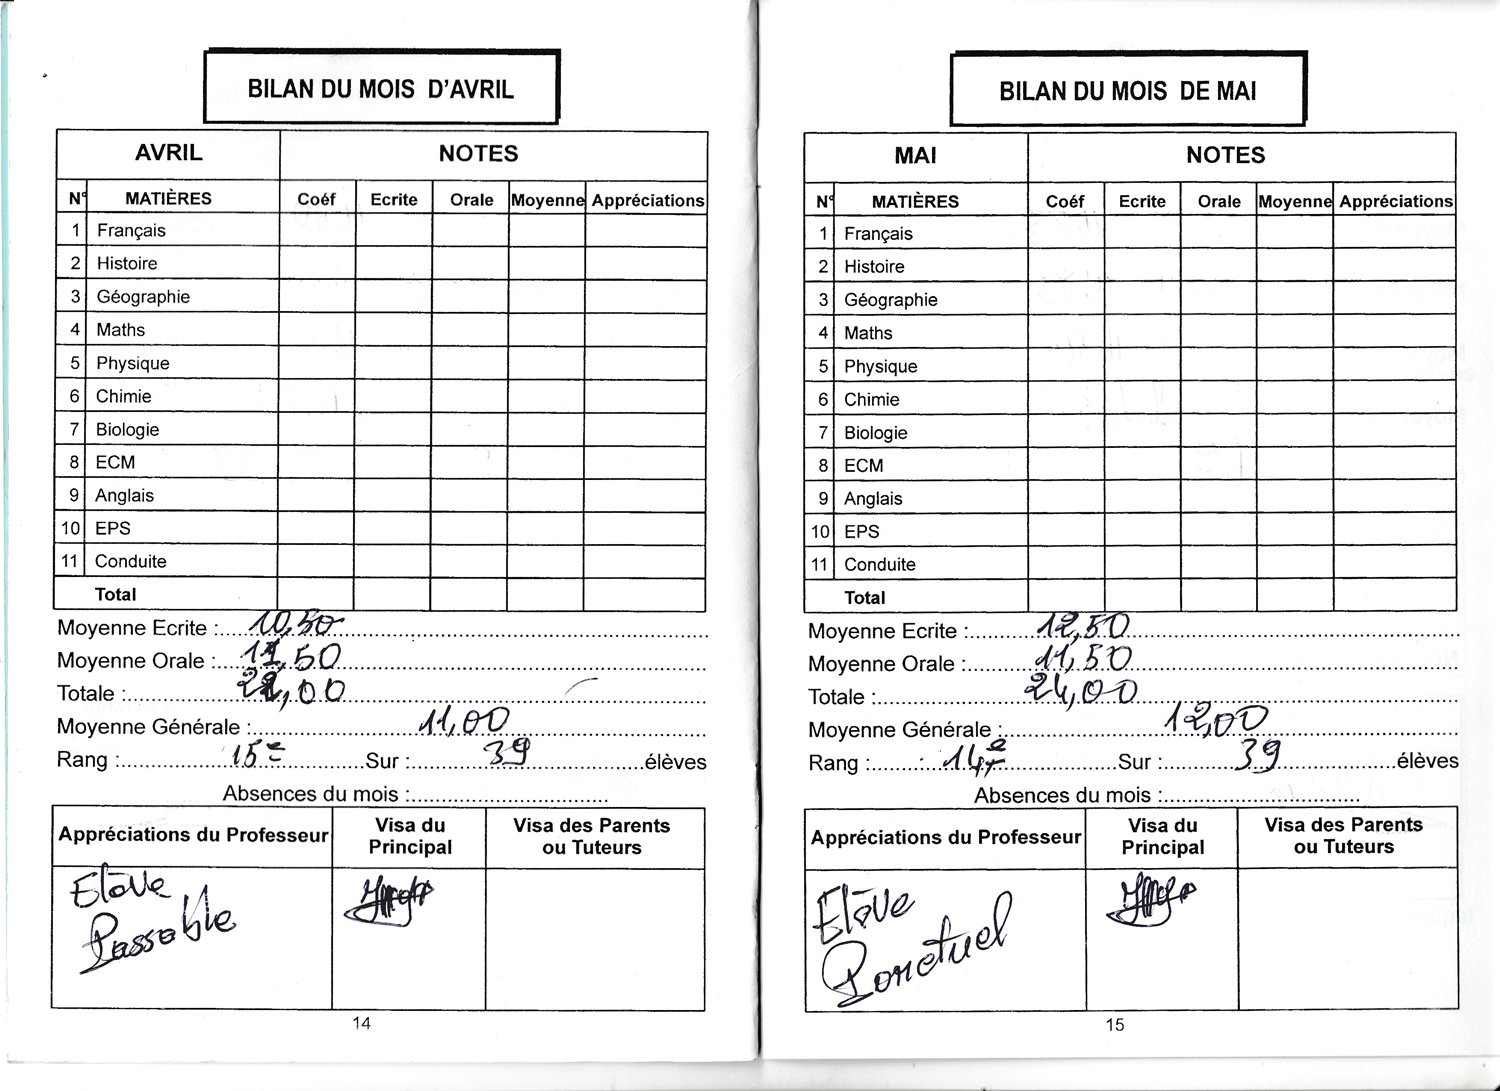 BILAN DU MOIS D'AVRIL
AVRIL NOTES
N° MATIÈRES Coéf Ecrite Orale Moyenne Appréciations
1 Français
2 Histoire
3 Géographie
4 Maths
5 Physique
6 Chimie
7 Biologie
8 ECM
9 Anglais
10 EPS
11 Conduite
Total
Moyenne Ecrite :....10,50....
Moyenne Orale :....11,50....
Totale :....22,00....
Moyenne Générale :....11,00....
Rang :....15e....Sur :....39....élèves
Absences du mois :....
Appréciations du Professeur Visa du Principal Visa des Parents ou Tuteurs
Elève
Passable
14
BILAN DU MOIS DE MAI
MAI NOTES
N° MATIÈRES Coéf Ecrite Orale Moyenne Appréciations
1 Français
2 Histoire
3 Géographie
4 Maths
5 Physique
6 Chimie
7 Biologie
8 ECM
9 Anglais
10 EPS
11 Conduite
Total
Moyenne Ecrite :....12,50....
Moyenne Orale :....11,50....
Totale :....24,00....
Moyenne Générale :....12,00....
Rang :....14e....Sur :....39....élèves
Absences du mois :....
Appréciations du Professeur Visa du Principal Visa des Parents ou Tuteurs
Elève
Ponctuel
15